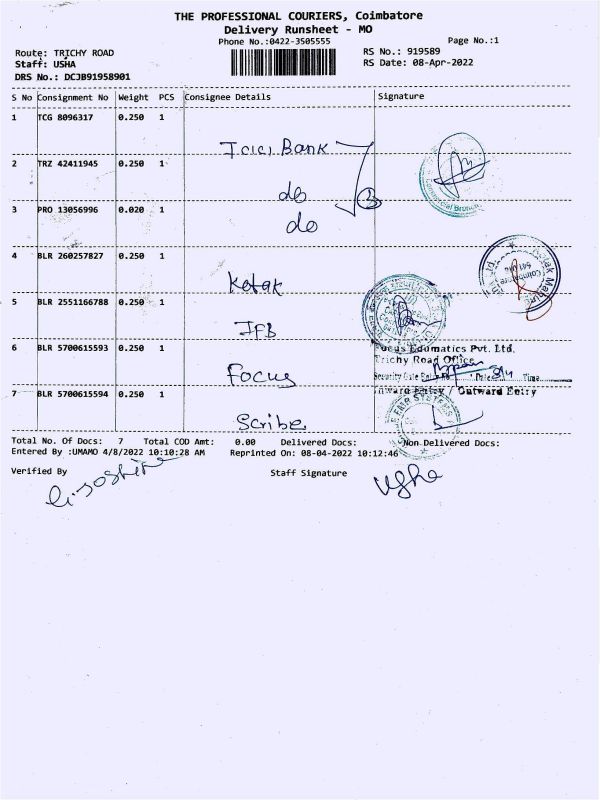 THE PROFESSIONAL COURIERS, Coimbatore
Delivery Runsheet - MO
Phone No.:0422-3505555
Page No.:1
Route: TRICHY ROAD
RS No.: 919589
Staff: USHA
RS Date: 08-Apr-2022
DRS No.: DCJB91958901
S No Consignment No Weight PCS Consignee Details Signature
1 TCG 8096317 0.250 1
Icici Bank
2 TRZ 42411945 0.250 1
do
3 PRO 13056996 0.020 1
do
3
4 BLR 260257827 0.250 1
Kotak
5 BLR 2551166788 0.250 1
IFB
6 BLR 5700615593 0.250 1
Focus
7 BLR 5700615594 0.250 1
Scribe
Commercial Branch
Kotak Mahin
Coimbatore
Focus Edumatics Pvt. Ltd.
Trichy Road Office
Security Gate Date 8/4 Time
Inward Entry / Outward Entry
EMR SYSTEMS
Total No. Of Docs: 7 Total COD Amt: 0.00 Delivered Docs: Non Delivered Docs:
Entered By :UMAMO 4/8/2022 10:10:28 AM Reprinted On: 08-04-2022 10:12:46
Verified By Staff Signature
Usha